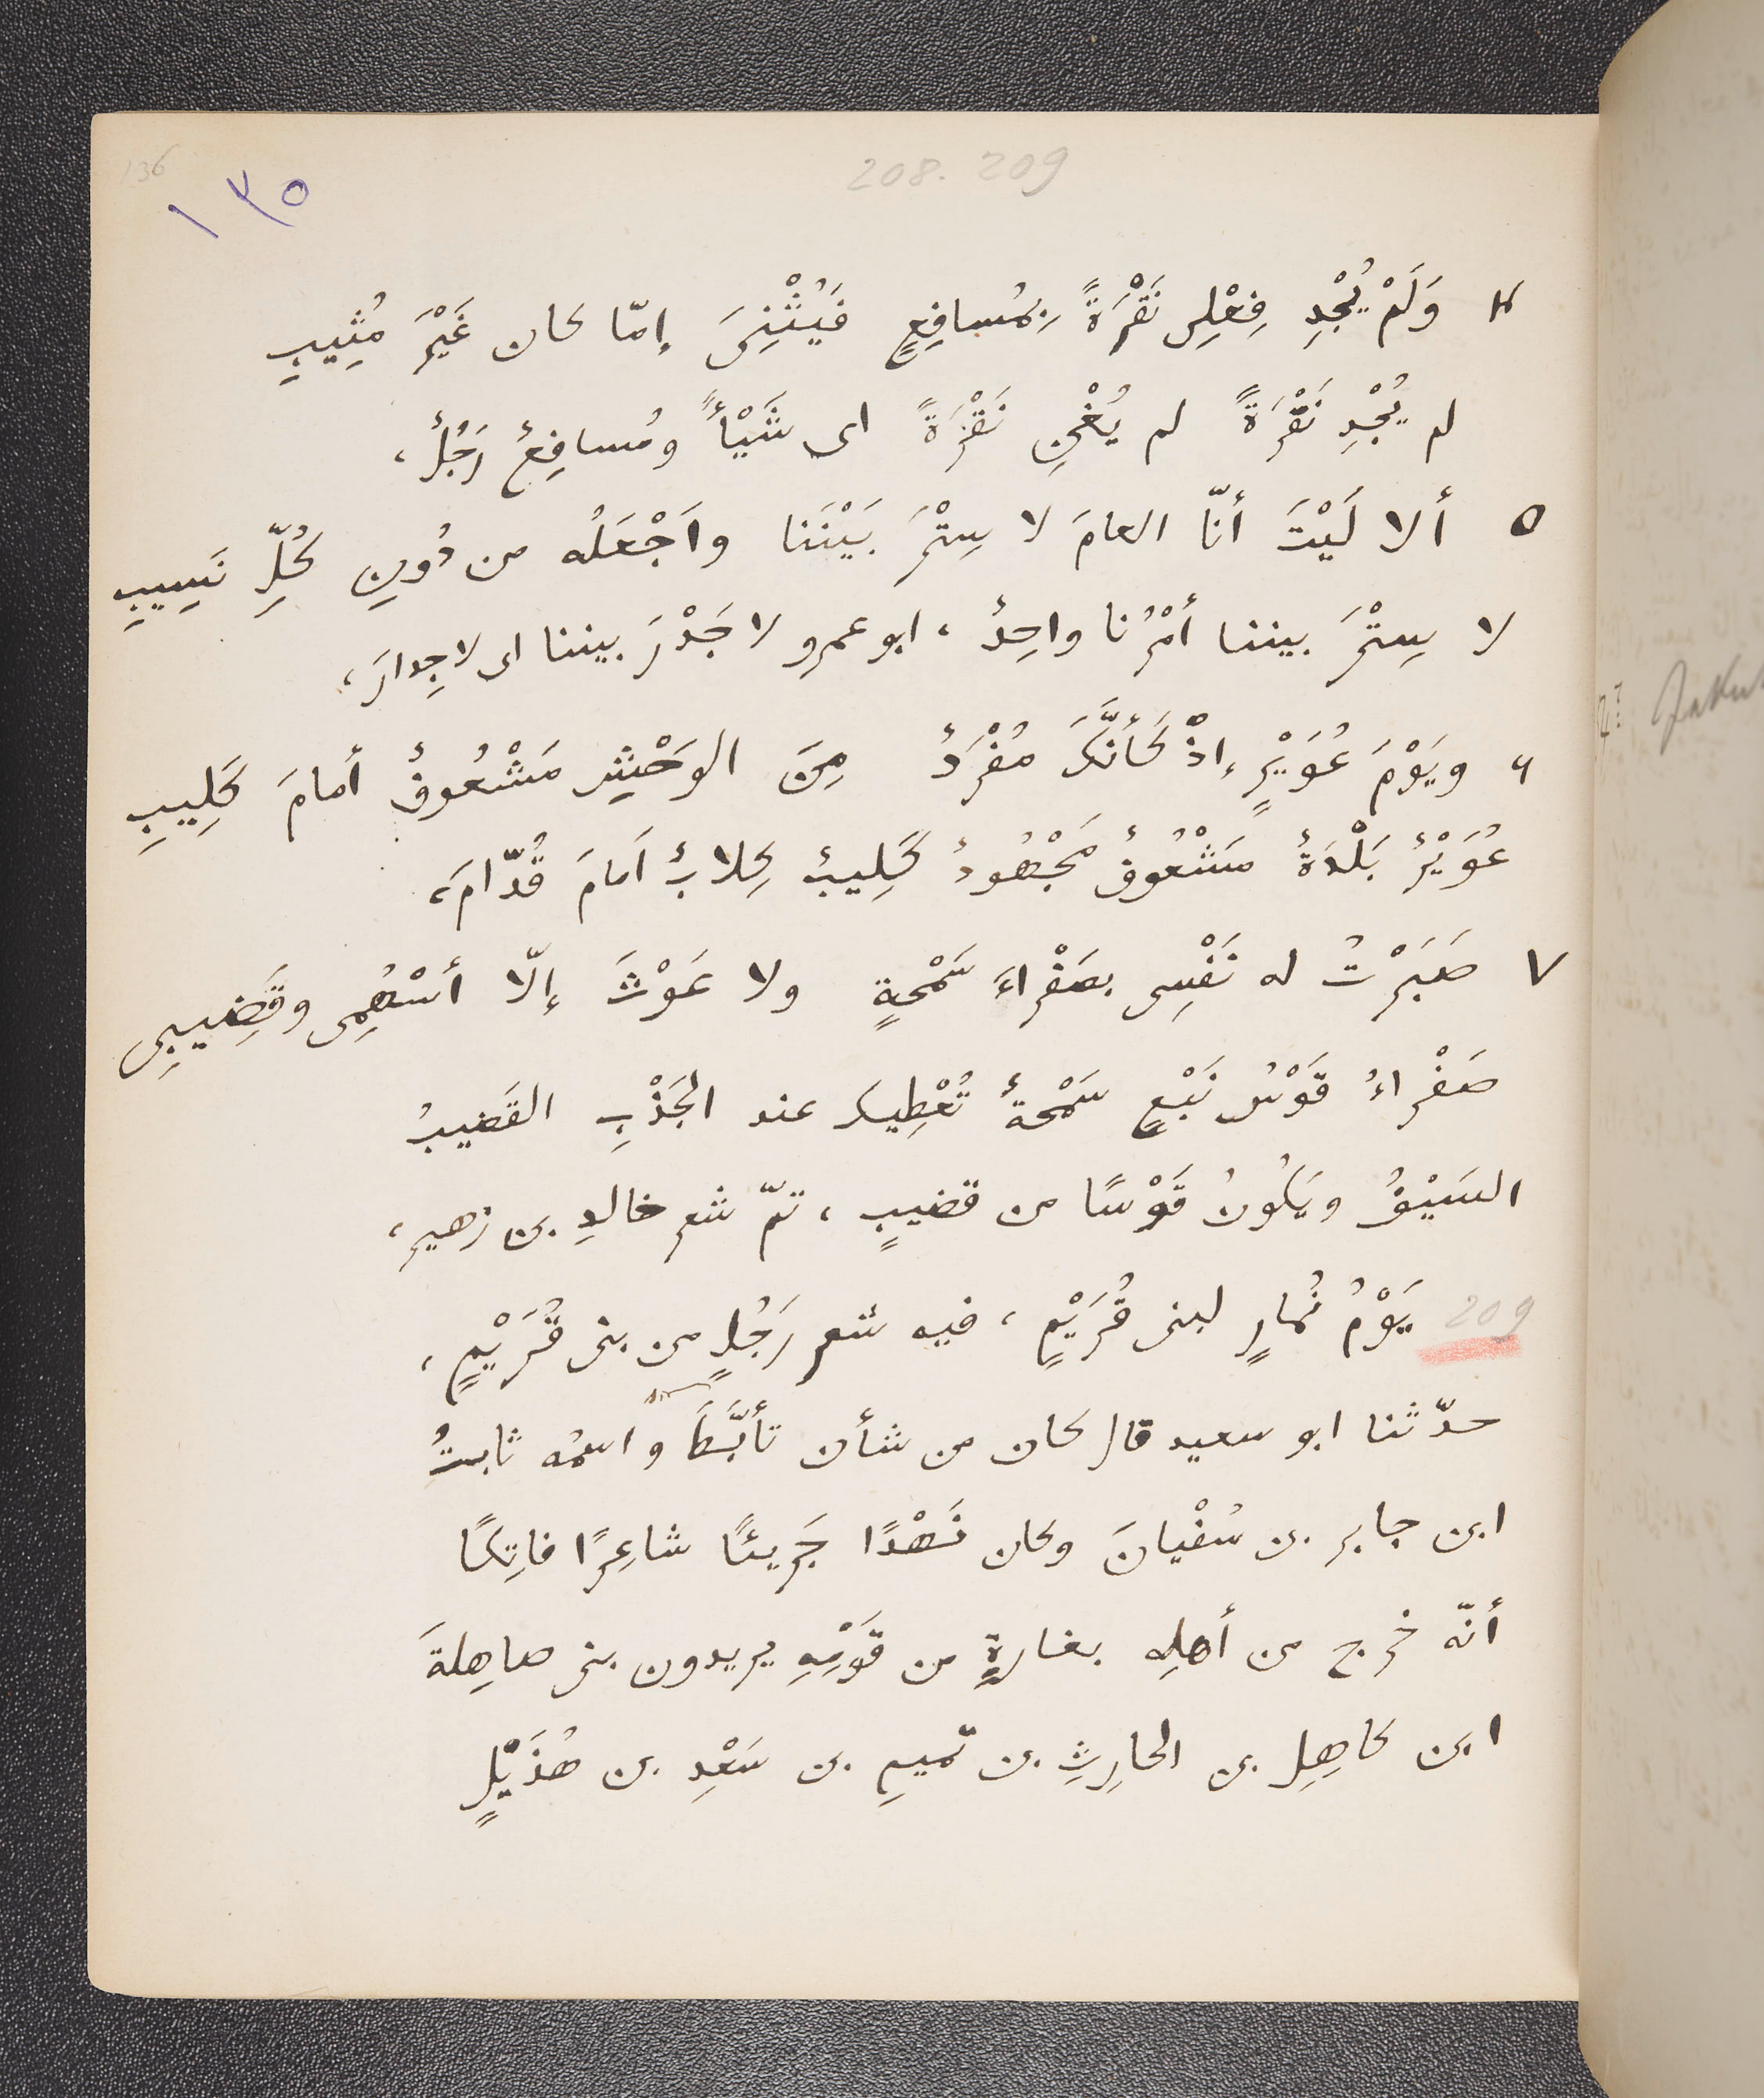 136
208. 209
١٣٥
٤ وَلَمْ يُجْدِ فِعْلِى نَقْرَةً بِمُسافِعٍ فَيُثْنِىَ إمّا كان غَيْرَ مُثِيبِ
لم يُجْدِ نَقْرَةً لم يُغْنِ نَقْرَةً اى شَيْأً ومُسافِعٌ رَجُلٌ،
٥ ألا لَيْتَ أنّا العامَ لا سِتْرَ بَيْنَنا واَجْعَلُه من دُونِ كُلِّ نَسِيبِ
لا سِتْرَ بيننا أمْرُنا واحِدٌ، ابو عمرو لا جَدْرَ بيننا اى لا جِدارَ،
٦ ويَوْمَ عُوَيْرٍ إذْ كَأنَّكَ مُفْرَدٌ مِنَ الوَحْشِ مَشْعُوفٌ أمامَ كَلِيبِ
عُوَيْرٌ بَلْدَةٌ مَشْعُوفٌ مَجْهُودٌ كَلِيبٌ كِلابٌ اَمامَ قُدّامَ،
٧ صَبَرْتُ له نَفْسِى بصَفْراءَ سَمْحةٍ ولا غَوْثَ إلّا أسْهُمِى وقَضِيبِى
صَفْراءُ قَوْسُ نَبْعٍ سَمْحةٌ تُعْطِيك عند الجَذْبِ القَضيبُ
السَيْفُ ويَكُونُ قَوْسًا من قضيبٍ، تمّ شعر خالدِ بن زهير،
209 يَوْمُ نُمارٍ لبنى قُرَيْمٍ، فيه شعر رَجُلٍ من بنى قُرَيْمٍ،
حدّثنا ابو سعيد قال كان من شأن تأبَّطَ واسمُه ثابتُ
ابن جابر بن سُفْيانَ وكان نَهْدًا جَرِيئًا شاعِرًا فاتِكًا
أنّه خرج من أهلِه بغارةٍ من قَوْمِهِ يريدون بنى صاهِلةَ
ابن كاهِلِ بن الحارِثِ بن تميمِ بن سَعْدِ بن هُذَيْلٍ